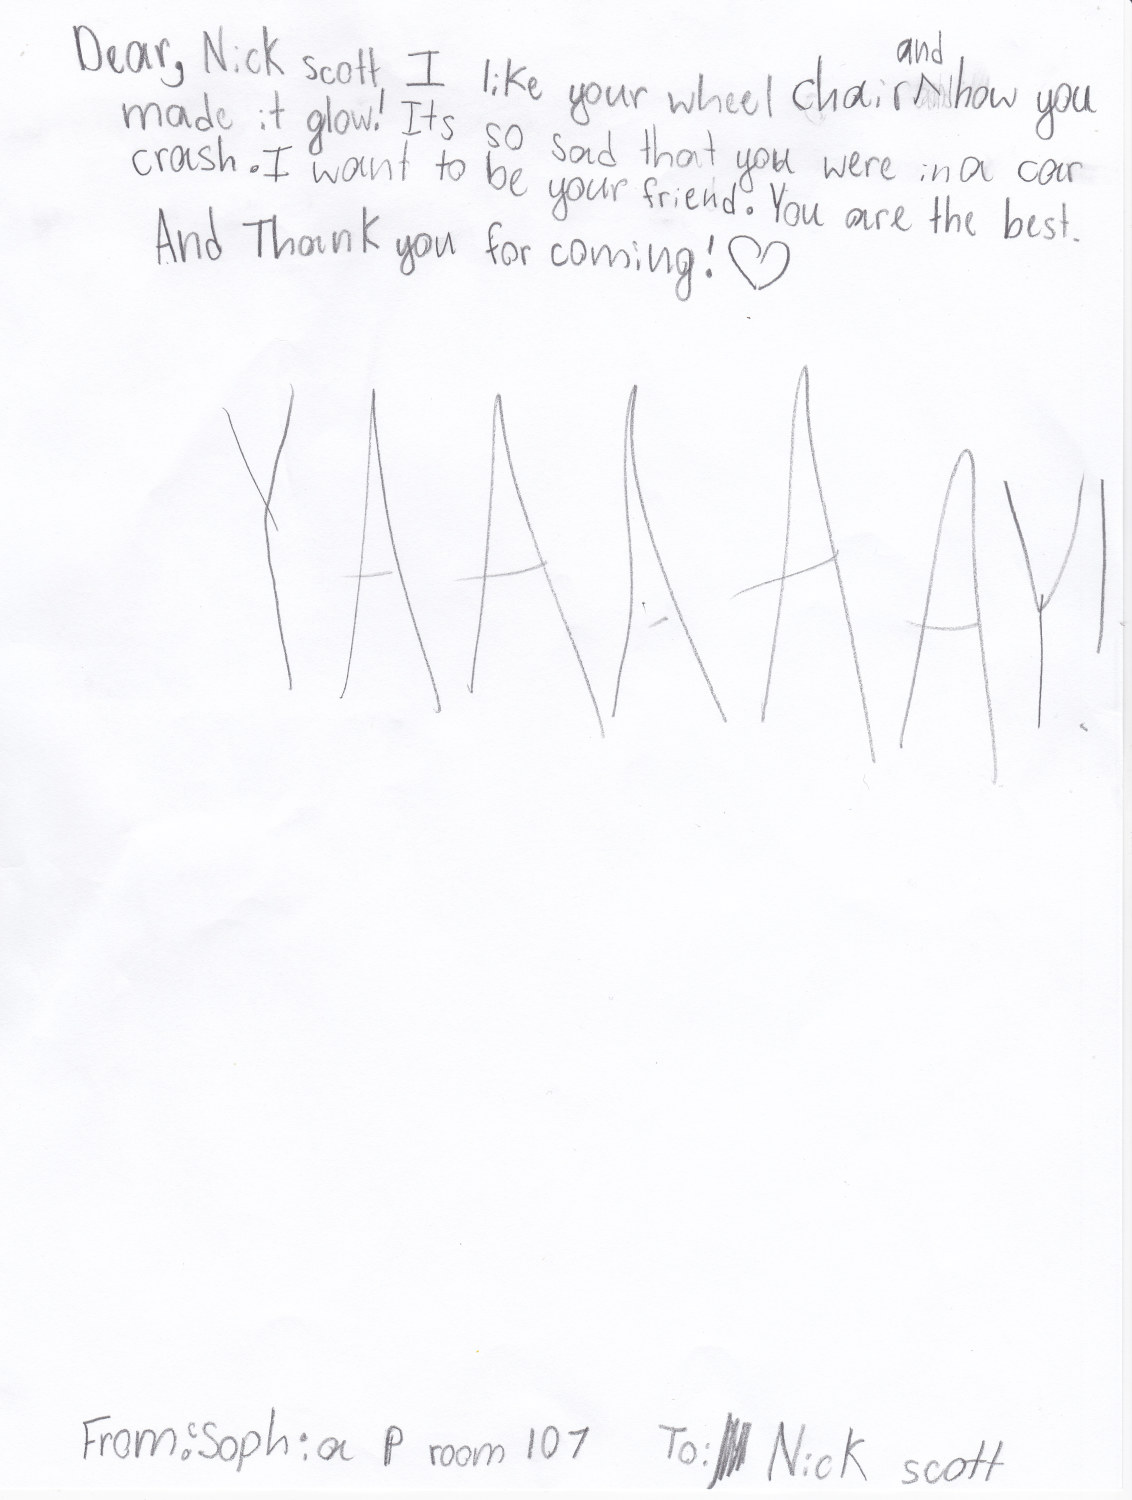 Dear, Nick scott I like your wheel chair and how you
made it glow! Its so sad that you were in a car
crash. I want to be your friend. You are the best.
And Thank you for coming! ♡
YAAAAAY!
From: Sophia P room 107 To: Nick scott